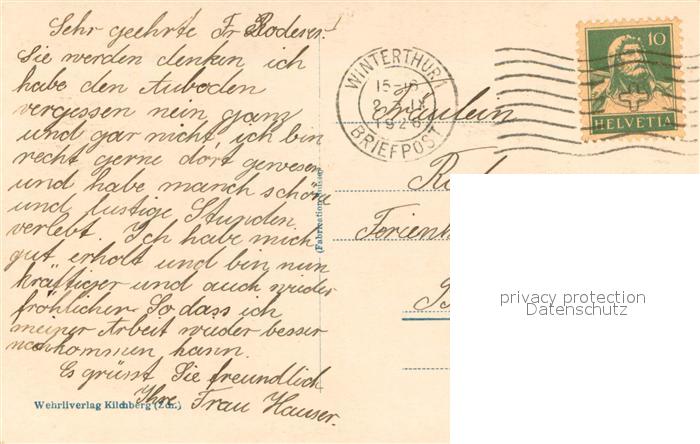 Sehr geehrte Fr Roderer!
Sie werden denken ich
habe den Auboden
vergessen nein ganz
und gar nicht, ich bin
recht gerne dort gewesen
und habe manch schöne
und lustige Stunden
verlebt. Ich habe mich
gut erholt und bin nun
kräftiger und auch wieder
fröhlicher. So dass ich
meiner Arbeit wieder besser
nachkommen kann.
Es grüsst Sie freundlich
Ihre Frau Hauser.
Wehrliverlag Kilchberg (Zch.)
(Fabrication Suisse)
WINTERTHUR 1
1926
BRIEFPOST
10
HELVETIA
Fräulein
Ferienh
privacy protection
Datenschutz